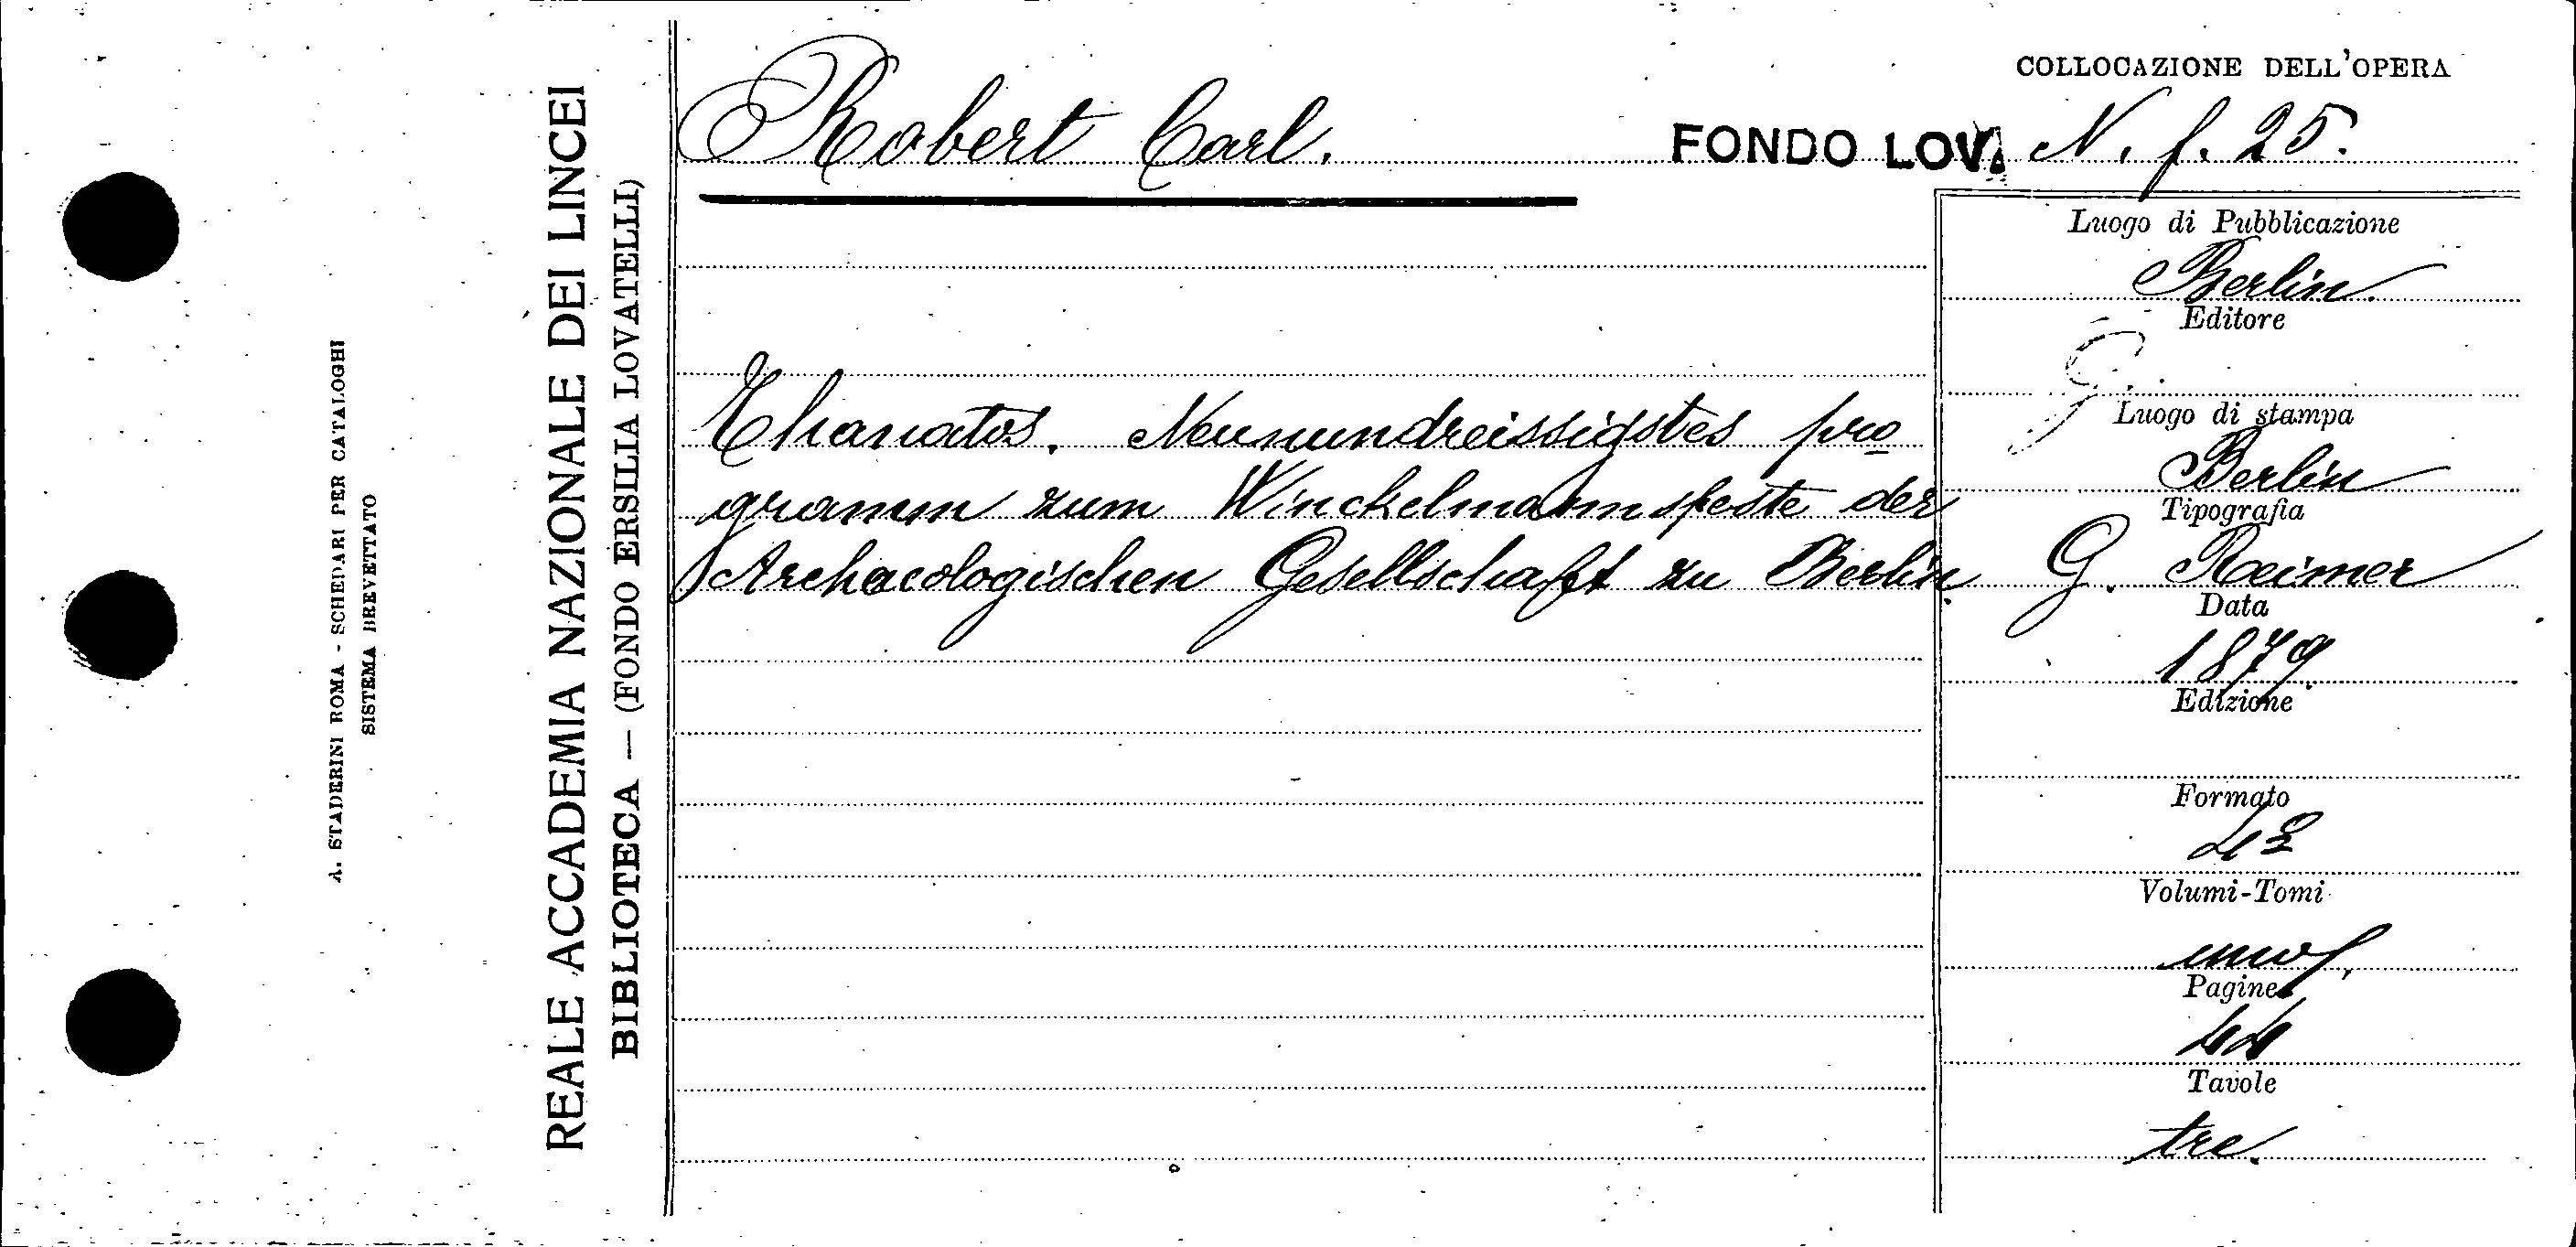 COLLOCAZIONE DELL'OPERA
Robert Carl.
FONDO LOV. N. f. 25.
Thanatos. Neunundreissigstes pro
gramm zum Winckelmannsfeste der
Archaeologischen Gesellschaft zu Berlin.
Luogo di Pubblicazione
Berlin.
Editore
Luogo di stampa
Berlin
Tipografia
G. Reimer
Data
1879.
Edizione
Formato
Volumi-Tomi
uno.
Pagine
44
Tavole
tre.
REALE ACCADEMIA NAZIONALE DEI LINCEI
BIBLIOTECA — (FONDO ERSILIA LOVATELLI)
A. STADERINI ROMA - SCHEDARI PER CATALOGHI
SISTEMA BREVETTATO